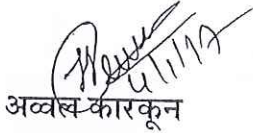 4/1/17
अव्वल कारकून